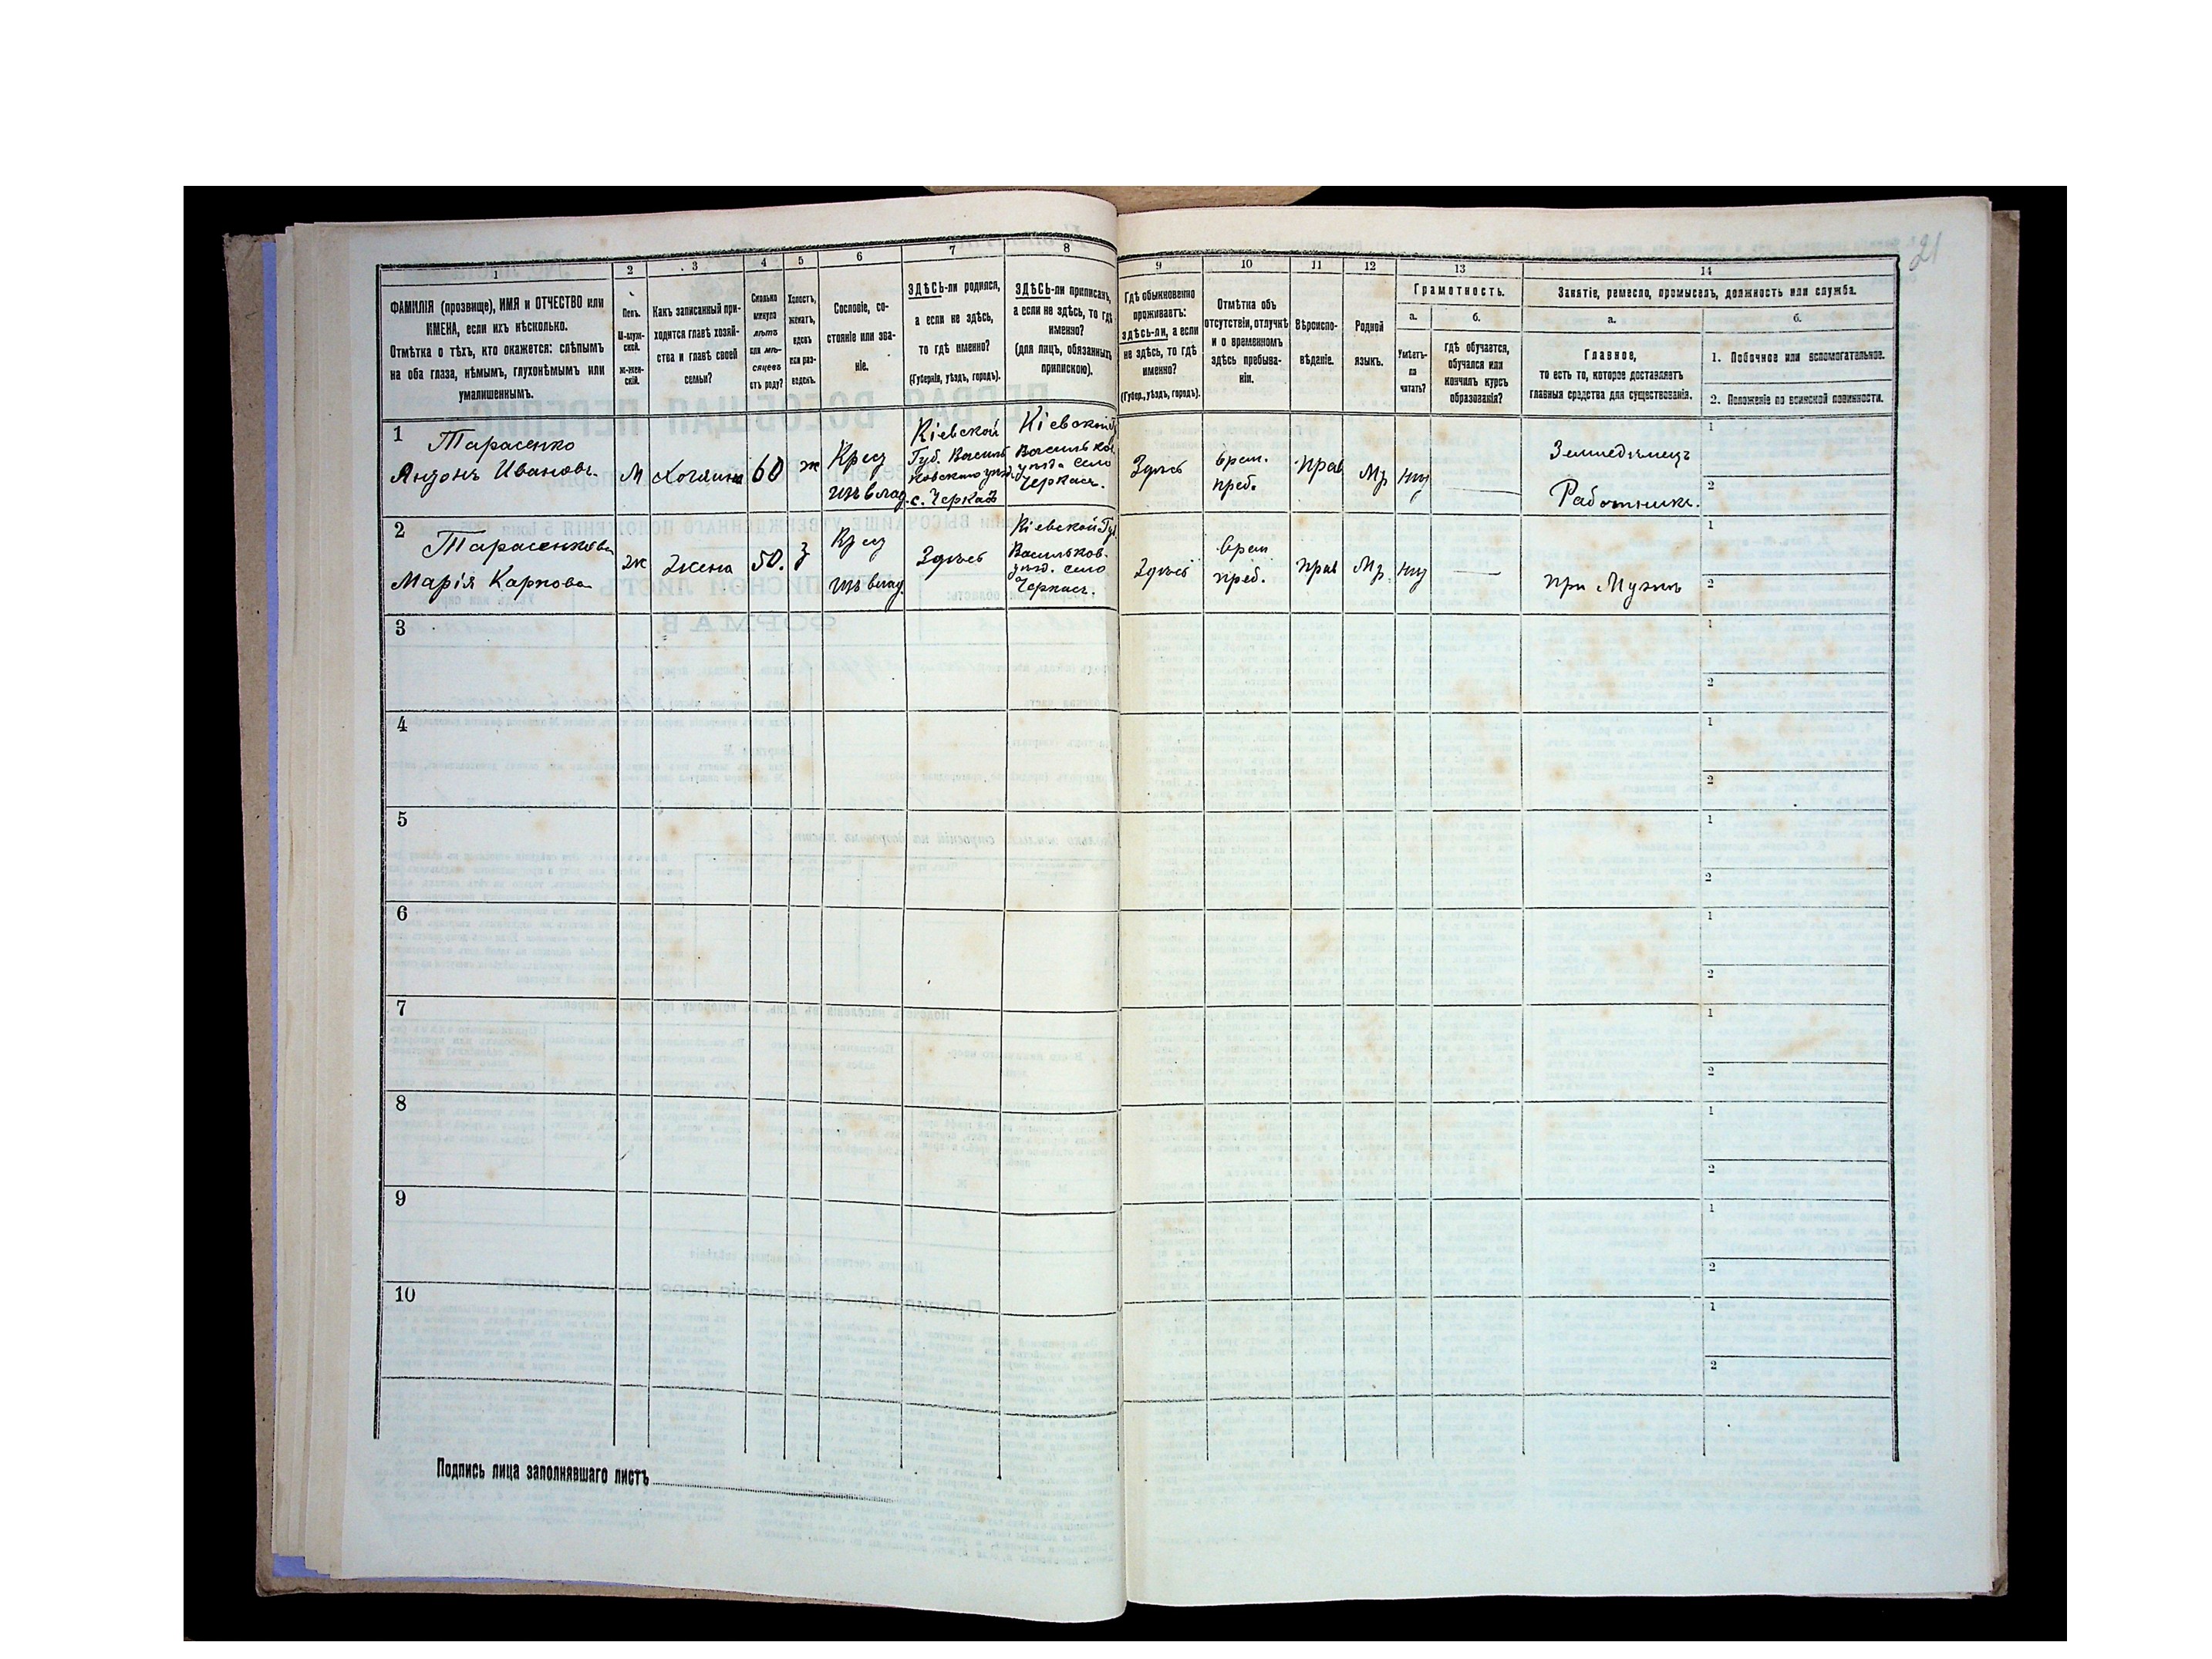 21
1 2 3 4 5 6 7 8 9 10 11 12 13 14
ФАМИЛІЯ (прозвище), ИМЯ и ОТЧЕСТВО или
ИМЕНА, если ихъ нѣсколько.
Отмѣтка о тѣхъ, кто окажется: слѣпымъ
на оба глаза, нѣмымъ, глухонѣмымъ или
умалишеннымъ.
Полъ.
М-муж-
ской.
ж-жен-
скій.
Какъ записанный при-
ходится главѣ хозяй-
ства и главѣ своей
семьи?
Сколько
минуло
лѣтъ
или мѣ-
сяцевъ
отъ роду?
Холостъ,
женатъ,
вдовъ
или раз-
веденъ.
Сословіе, со-
стояніе или зва-
ніе.
ЗДѢСЬ-ли родился,
а если не здѣсь,
то гдѣ именно?
(Губернія, уѣздъ, городъ).
ЗДѢСЬ-ли приписанъ,
а если не здѣсь, то гдѣ
именно?
(для лицъ, обязанныхъ
припискою).
Гдѣ обыкновенно
проживаетъ:
здѣсь-ли, а если
не здѣсь, то гдѣ
именно?
(Губер., уѣздъ, городъ).
Отмѣтка объ
отсутствіи, отлучкѣ
и о временномъ
здѣсь пребыва-
ніи.
Вѣроиспо-
вѣданіе.
Родной
языкъ.
Грамотность.
а.
Умѣетъ-
ли
читать?
б.
гдѣ обучается,
обучался или
кончилъ курсъ
образованія?
Занятіе, ремесло, промыселъ, должность или служба.
а.
Главное,
то есть то, которое доставляетъ
главныя средства для существованія.
б.
1. Побочное или вспомогательное.
2. Положеніе по воинской повинности.
1
Тарасенко
Антонъ Ивановъ.
М
Хозяинъ
60
ж
Крест
изъ влад.
Кіевской
Губ. Василь
ковскаго уѣзд.
с. Черкас
Кіевской Г
Васильков
уѣзда село
Черкасъ.
Здѣсь
врем.
преб.
прав
Мр
нѣт
Земледѣлецъ
Работникъ.
1
2
2
Тарасенкова
Марія Карпова
ж
Жена
50.
з
Крест
изъ влад.
Здѣсь
Кіевской Губ
Васильков.
уѣзд. село
Черкасъ.
Здѣсь
врем
преб.
прав
Мр.
нѣт
при Мужѣ
1
2
3
1
2
4
1
2
5
1
2
6
1
2
7
1
2
8
1
2
9
1
2
10
1
2
Подпись лица заполнявшаго листъ